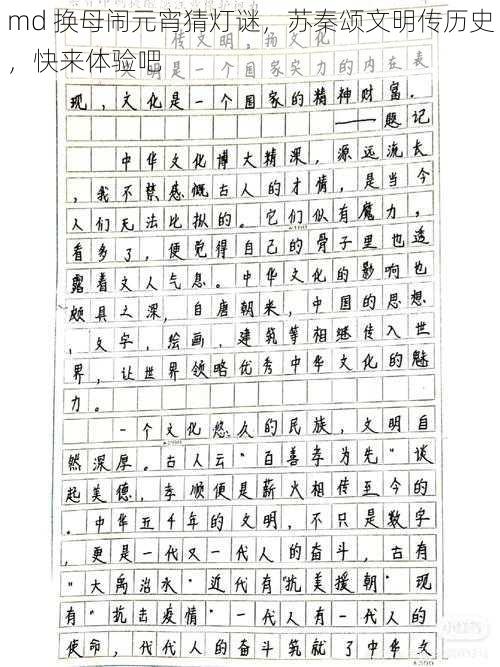 md 换母闹元宵猜灯谜，苏秦颂文明传历史
，快来体验吧
传文明，扬文化
是一个国家实力的内在表
现，文化是一个国家的精神财富.
——题记
中华文化博大精深，源远流长
，我不禁感慨古人的才情，是当今
人们无法比拟的。它们似有魔力，
看多了，便觉得自己的骨子里也透
露着文人气息。中华文化的影响也
颇具之深，自唐朝来，中国的思想
、文字，绘画，建筑等相继传入世
界，让世界领略优秀中华文化的魅
力。
一个文化悠久的民族，文明自
然深厚。古人云"百善孝为先"谈
起美德，孝顺便是薪火相传至今的
。中华五千年的文明，不只是数字
，更是一代又一代人的奋斗，古有
"大禹治水"近代有"抗美援朝"现
有"抗击疫情"一代人有一代人的
使命，代代人的奋斗筑就了中华文
小红书